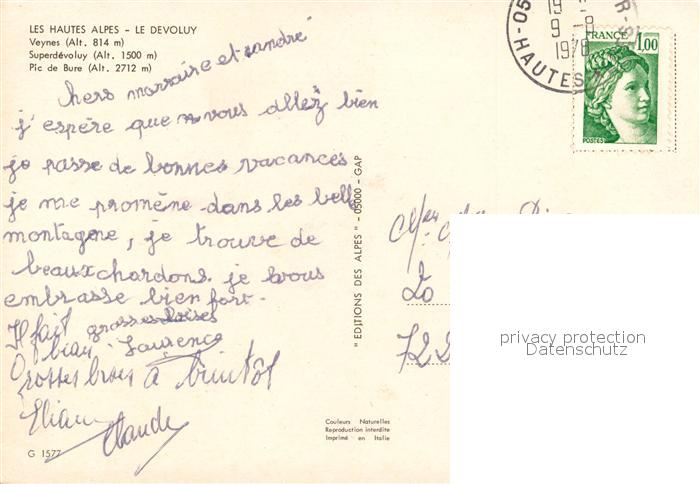 LES HAUTES ALPES - LE DEVOLUY
Veynes (Alt. 814 m)
Superdévoluy (Alt. 1500 m)
Pic de Bure (Alt. 2712 m)
hers marraire et andré
j'espère que vous allez bien
je passe de bonnes vacances
je me promène dans les bell
montagene, je trouve de
beaux chardons. je vous
embrasse bien fort.
Il fait grosses bises
beau Laurence
Grosses bises à bientôt
Eliane
Claude
G 1577
"EDITIONS DES ALPES" - 05000 - GAP
Couleurs Naturelles
Reproduction interdite
Imprimé en Italie
19
9 - 8
1978
HAUTES
FRANCE
1,00
POSTES
20
722
privacy protection
Datenschutz